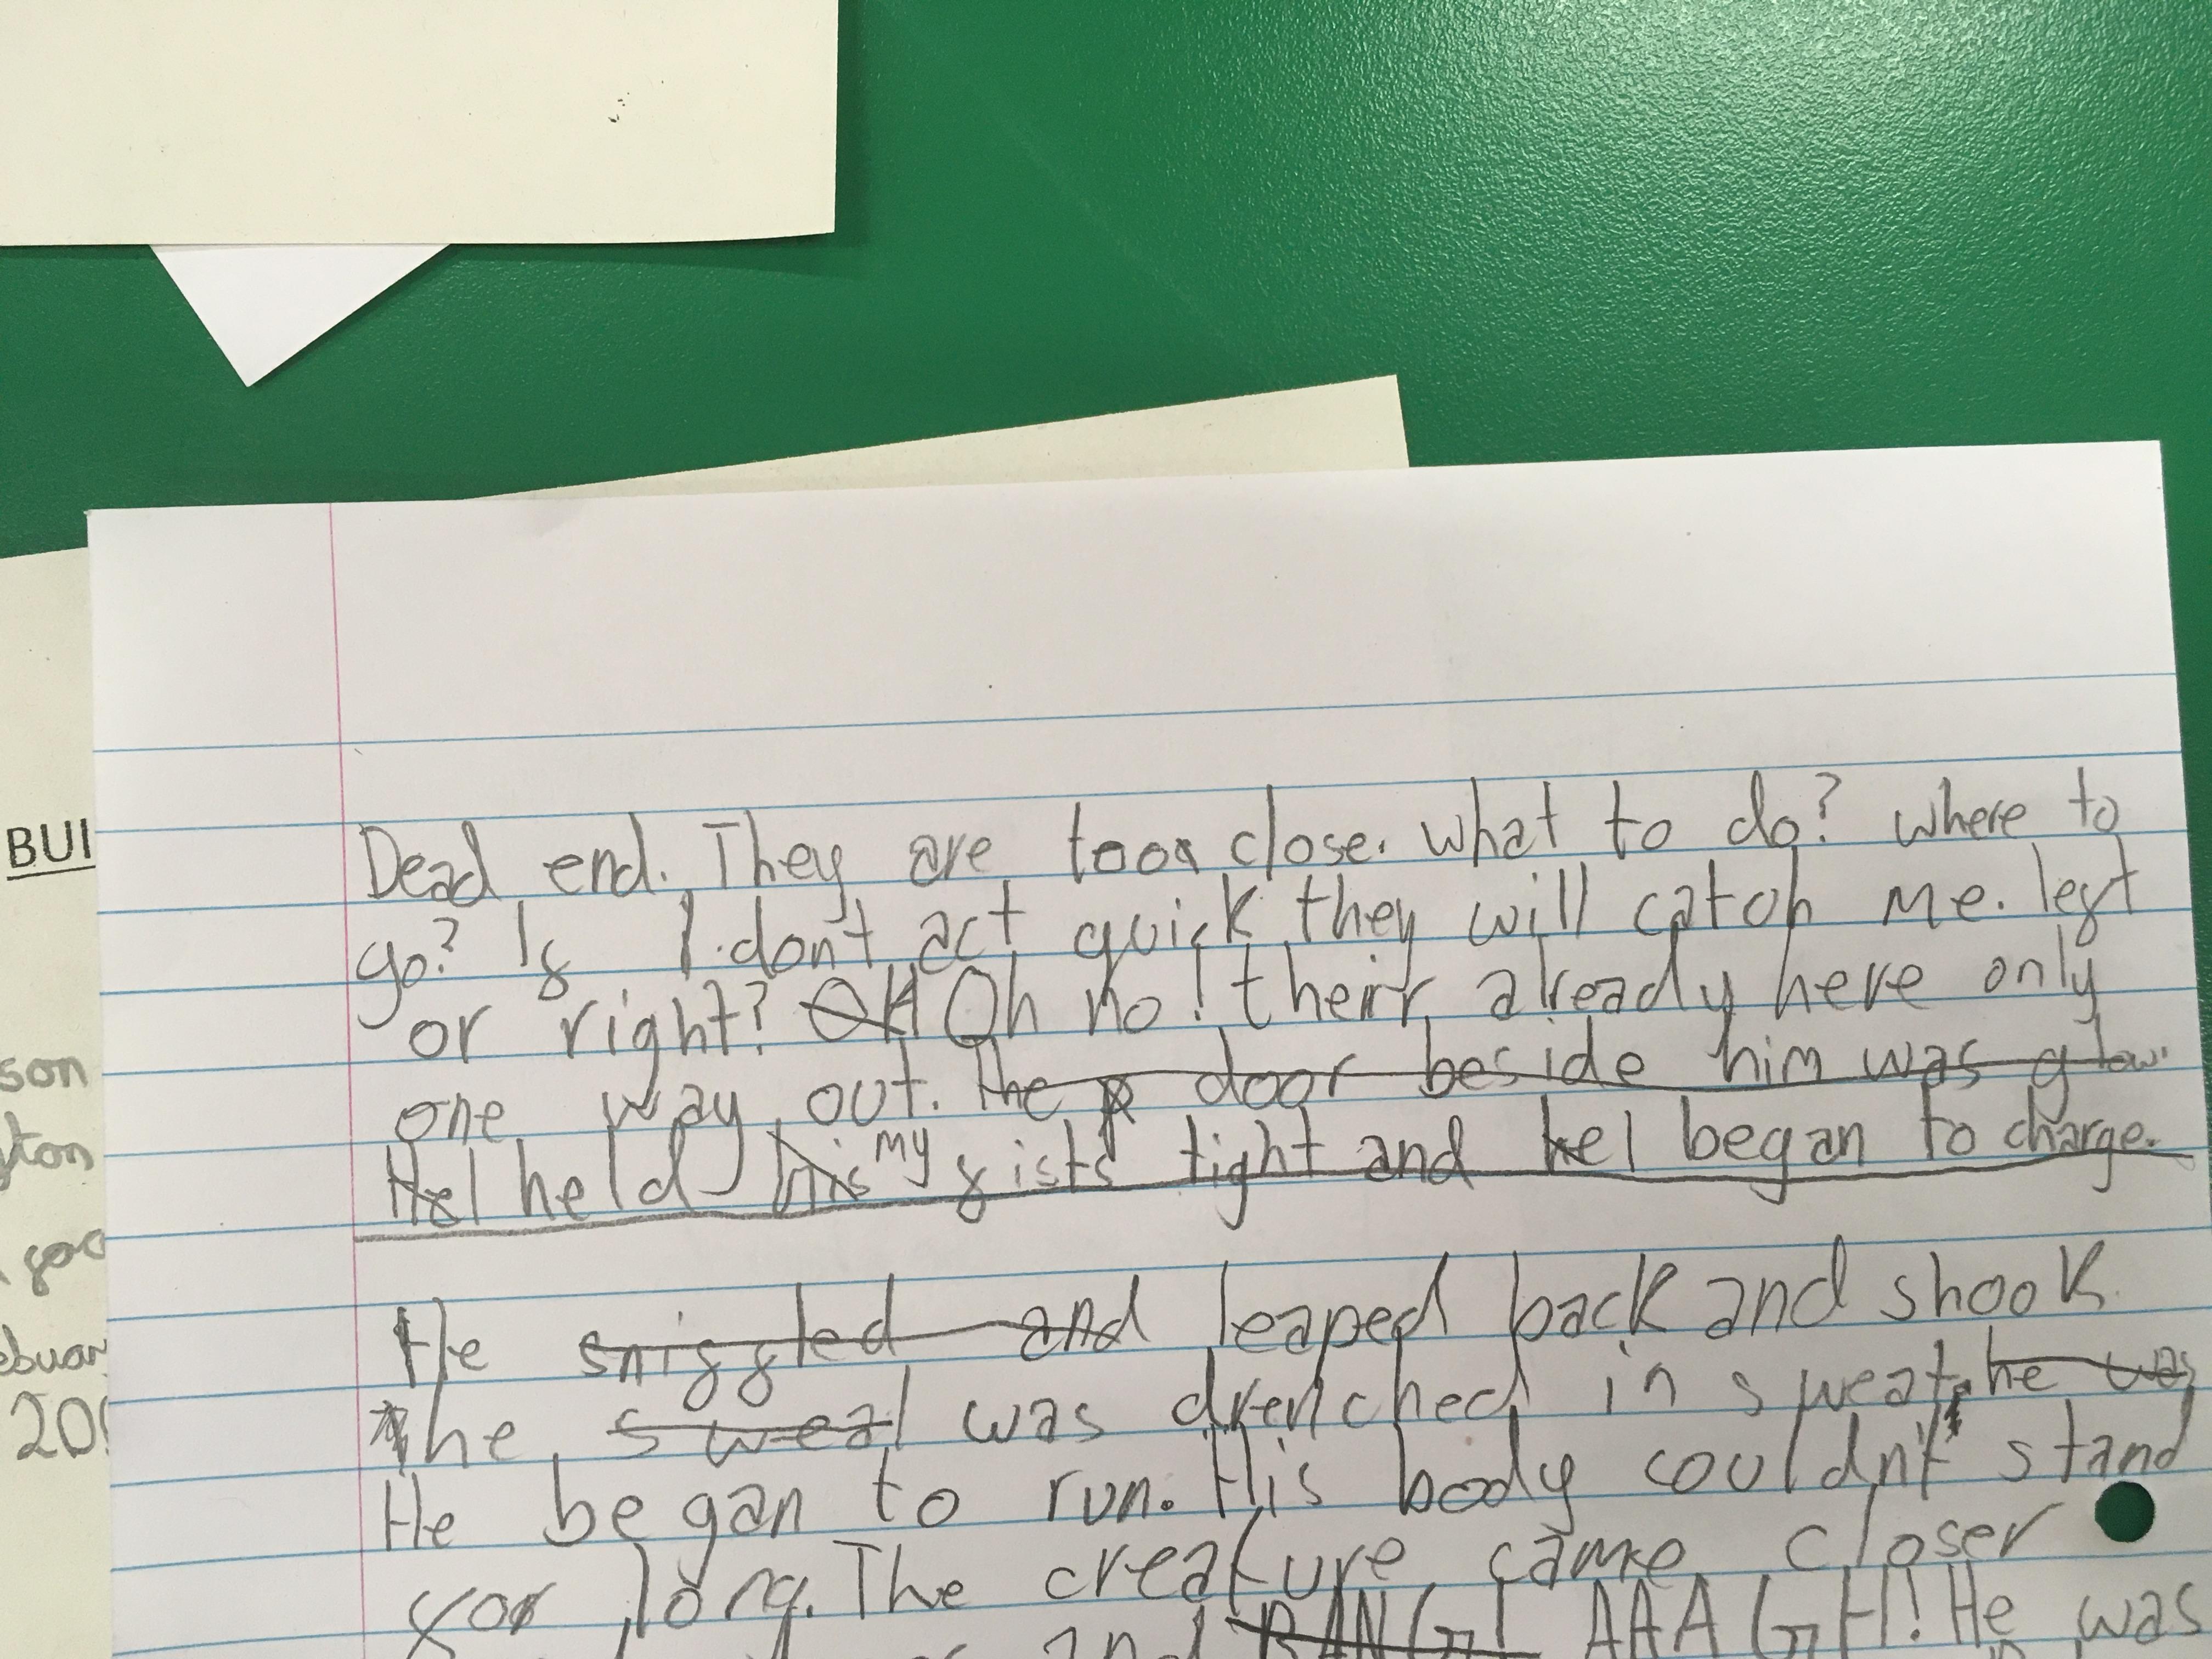 Dead end. They are too close. what to do? where to
go? If I don't act quick they will catch me. left
or right? OH Oh no! their already here only
one way out. The door beside him was glow
He I held his my fists tight and he I began to charge.
He sniffled and leaped back and shook
he sweat was drenched in sweat, he was
He began to run. His body couldn't stand
for long. The creature came closer
and BANG! AAAGH! He was
BUI
son
ton
ebuar
20